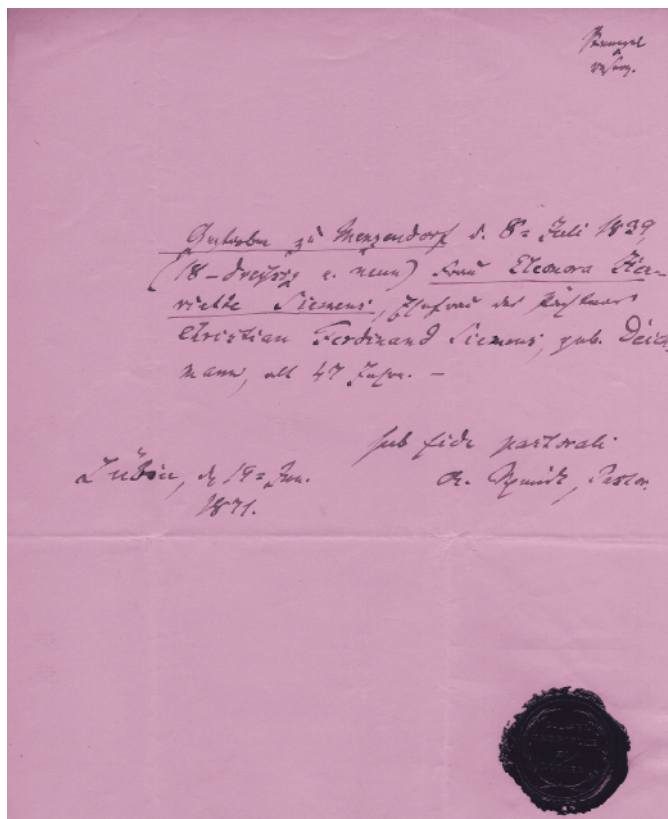 Gestorben zu Menzendorf d. 8= Juli 1839,
(18-dreißig u. neun) Frau Eleonora Hen-
riette Siemens, Ehefrau des Pächters
Christian Ferdinand Siemens, geb. Deich-
mann, alt 47 Jahre. –
sub fide pastorali
Lübsee, d. 19= Jun. A. Schmidt, Pastor.
1871.